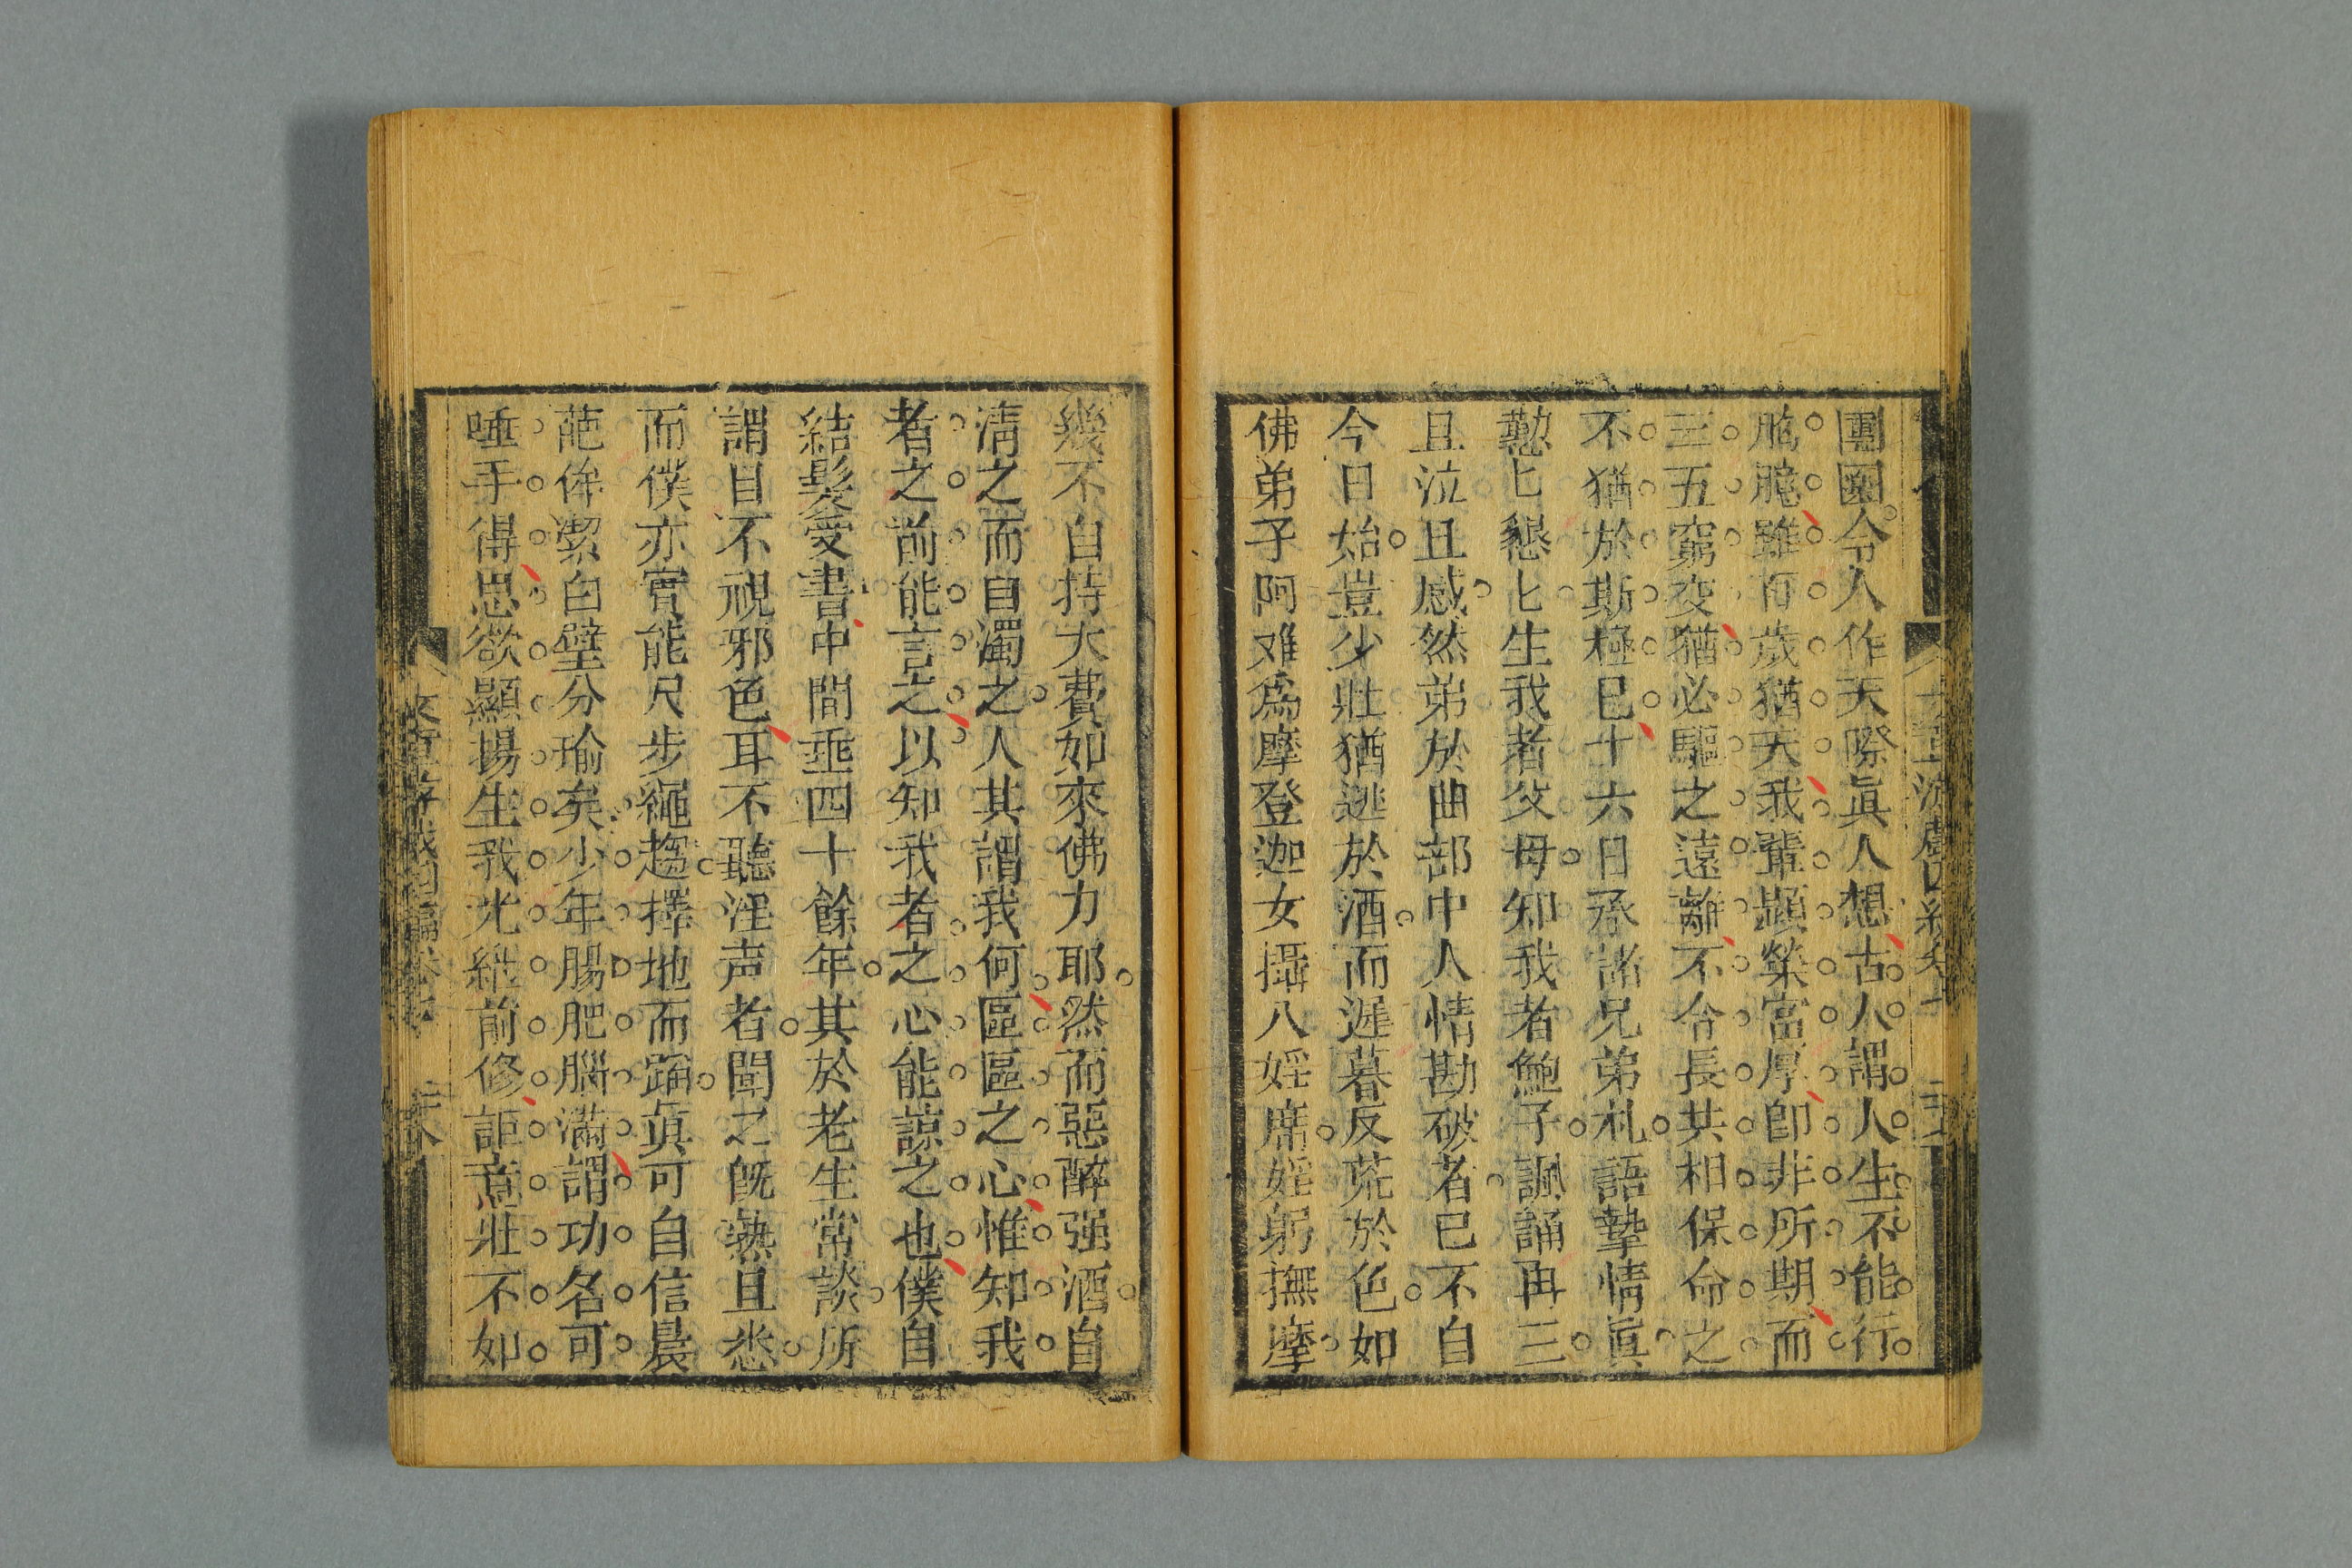 團圝令人作天際眞人想古人謂人生不能行
胸臆雖百歲猶夭我輩顯榮富厚卽非所期而
三五窮交猶必驅之遠離不令長共相保命之
不猶於斯極已十六日承諸兄弟札語摯情眞
懃匕懇匕生我者父母知我者鮑子諷誦再三
且泣且感然弟於曲部中人情勘破者已不自
今日始豈少壯猶逃於酒而遲暮反荒於色如
佛弟子阿难爲摩登迦女攝入婬席婬躬撫摩
幾不自持大費如來佛力耶然而惡醉强酒自
淸之而自濁之人其謂我何區區之心惟知我
者之前能言之以知我者之心能諒之也僕自
結髮受書中間垂四十餘年其於老生常談所
謂目不視邪色耳不聽淫声者聞之旣熟且悉
而僕亦實能尺步繩趨擇地而蹈眞可自信晨
葩侔潔白璧分瑜矣少年腸肥腦滿謂功名可
唾手得思欲顯揚生我光繼前修詎意壯不如